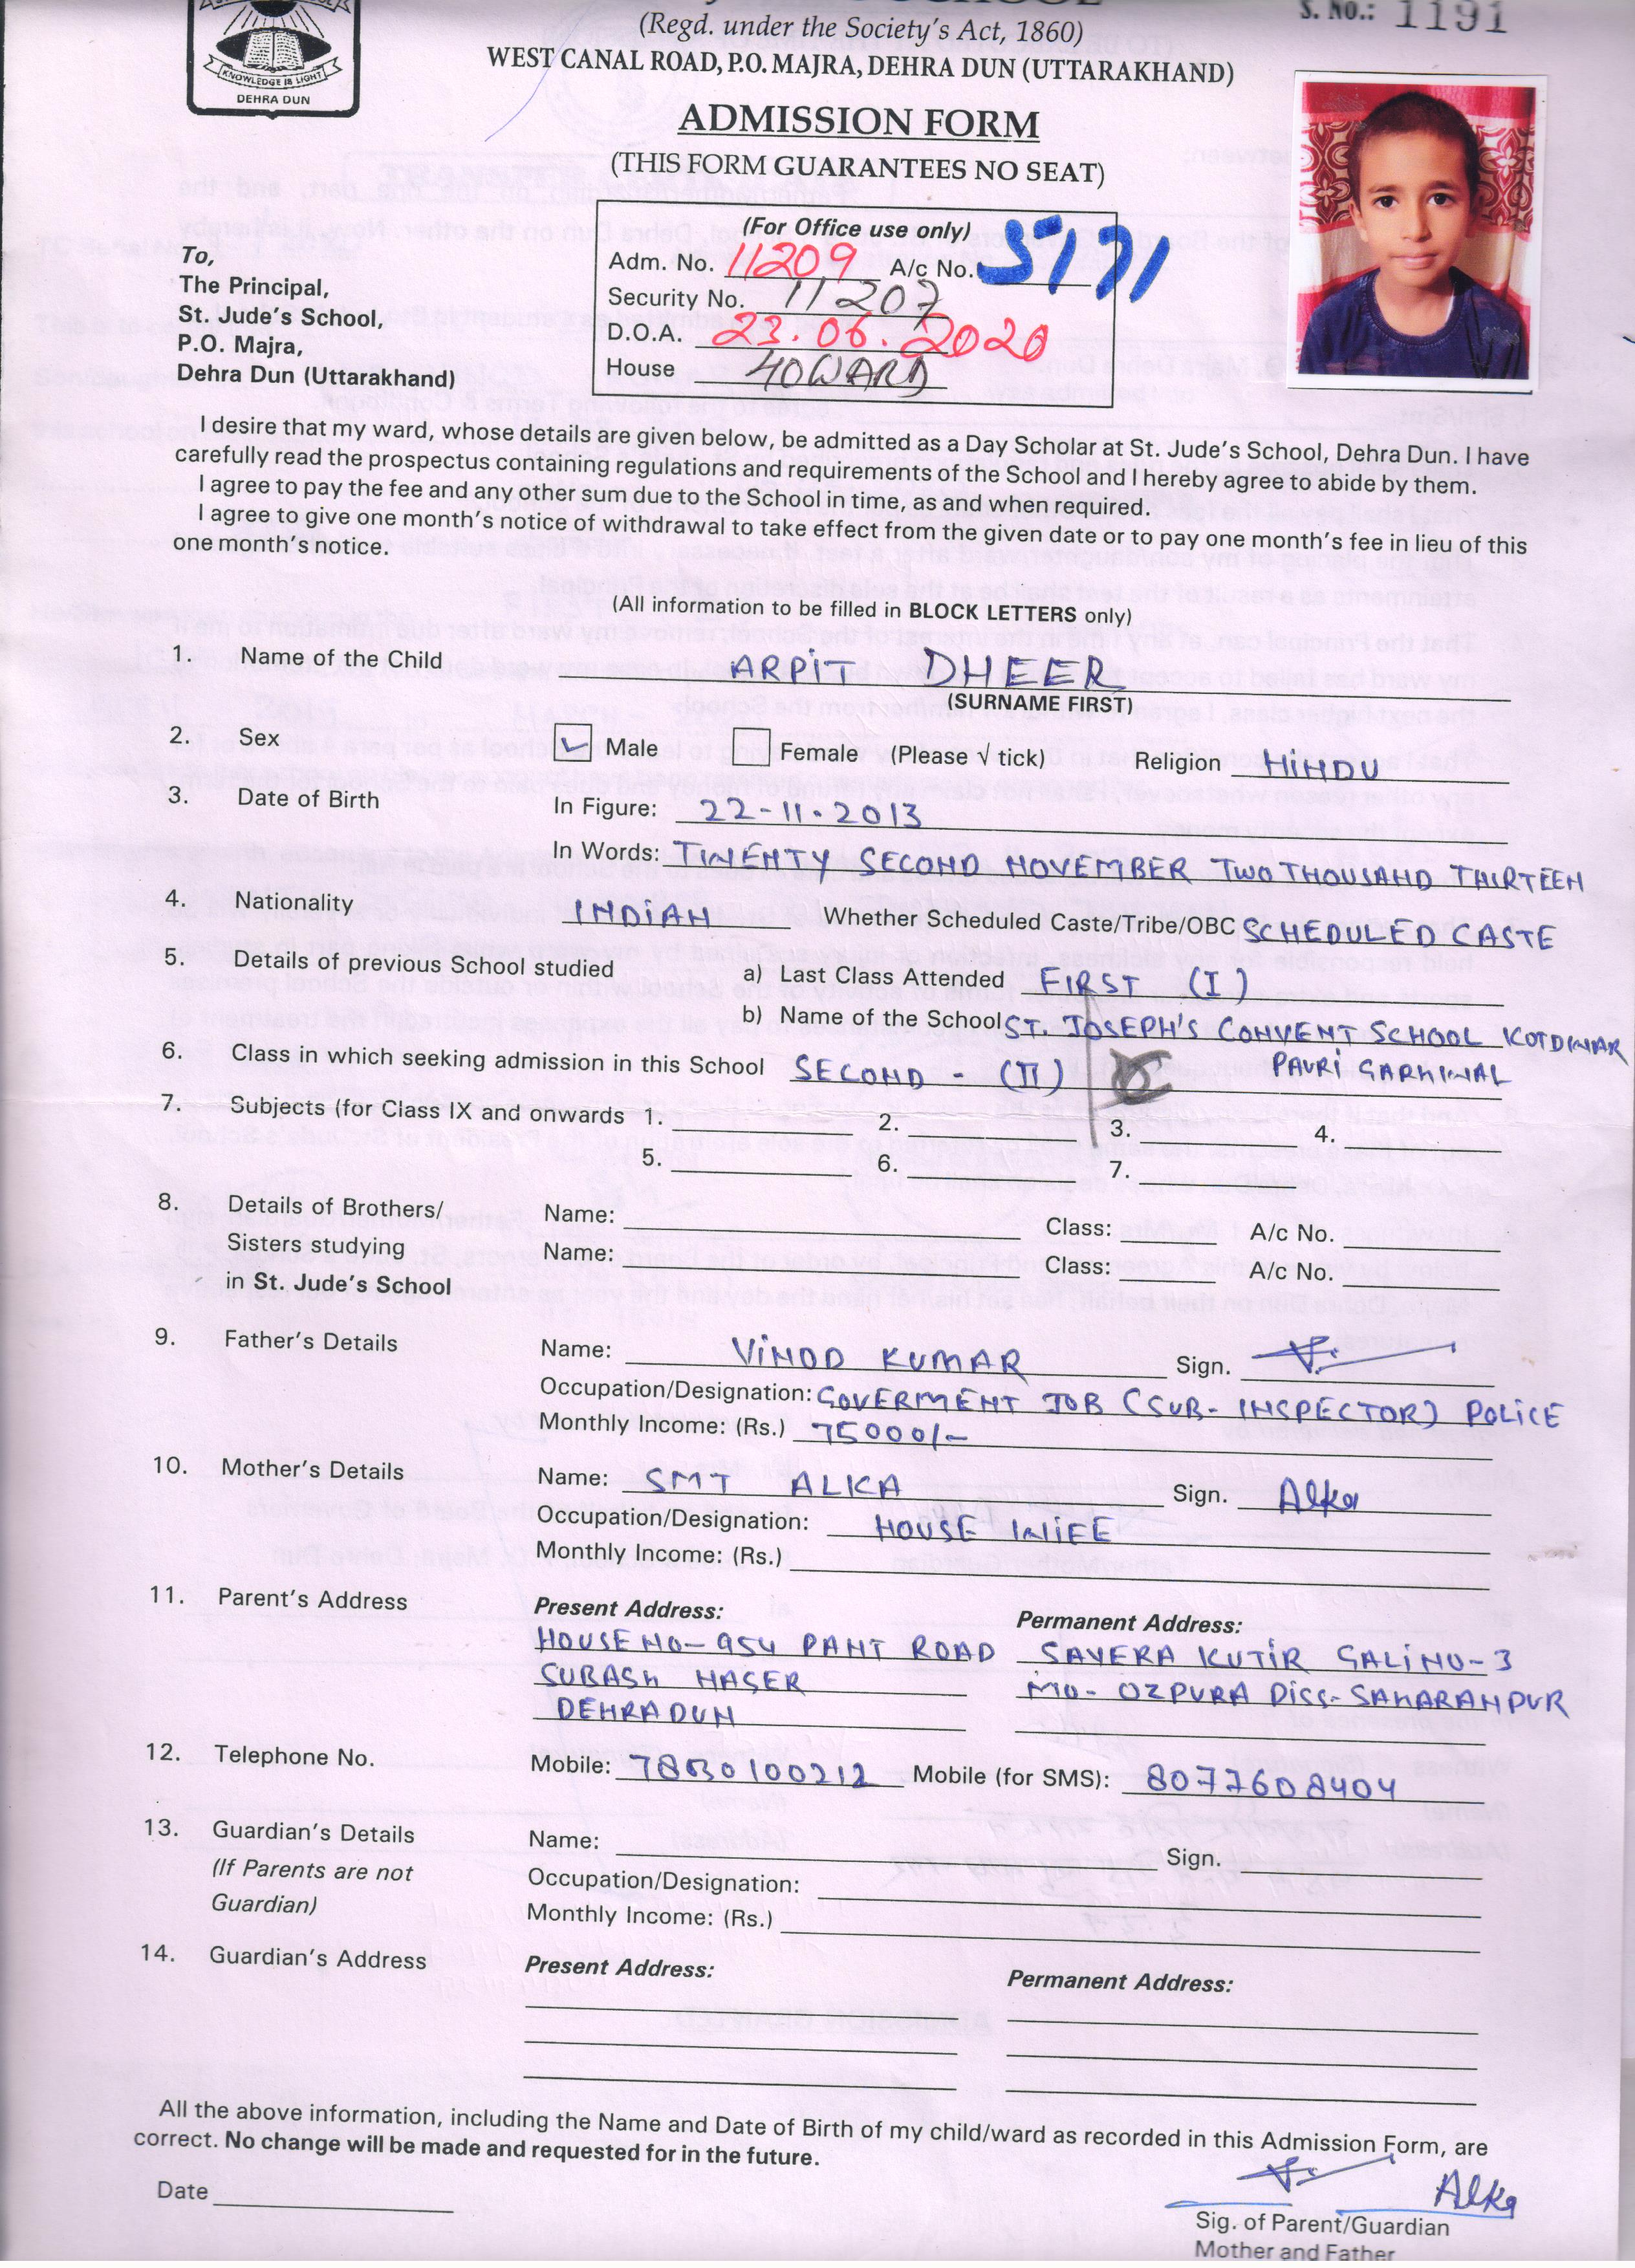 KNOWLEDGE IS LIGHT
DEHRA DUN
S. No.: 1191
(Regd. under the Society's Act, 1860)
WEST CANAL ROAD, P.O. MAJRA, DEHRA DUN (UTTARAKHAND)
ADMISSION FORM
(THIS FORM GUARANTEES NO SEAT)
(For Office use only)
Adm. No. 11209 A/c No. 5171
Security No. 11207
D.O.A. 23.06.2020
House HOWARD
To,
The Principal,
St. Jude's School,
P.O. Majra,
Dehra Dun (Uttarakhand)
I desire that my ward, whose details are given below, be admitted as a Day Scholar at St. Jude's School, Dehra Dun. I have
carefully read the prospectus containing regulations and requirements of the School and I hereby agree to abide by them.
I agree to pay the fee and any other sum due to the School in time, as and when required.
I agree to give one month's notice of withdrawal to take effect from the given date or to pay one month's fee in lieu of this
one month's notice.
(All information to be filled in BLOCK LETTERS only)
1. Name of the Child ARPIT DHEER
(SURNAME FIRST)
2. Sex Male Female (Please √ tick) Religion HINDU
3. Date of Birth In Figure: 22-11-2013
In Words: TWENTY SECOND NOVEMBER TWO THOUSAND THIRTEEN
4. Nationality INDIAN Whether Scheduled Caste/Tribe/OBC SCHEDULED CASTE
5. Details of previous School studied a) Last Class Attended FIRST (I)
b) Name of the School ST. JOSEPH'S CONVENT SCHOOL KOTDWAR
PAURI GARHWAL
6. Class in which seeking admission in this School SECOND - (II)
7. Subjects (for Class IX and onwards 1. 2. 3. 4.
5. 6. 7.
8. Details of Brothers/ Name: Class: A/c No.
Sisters studying Name: Class: A/c No.
in St. Jude's School
9. Father's Details Name: VINOD KUMAR Sign.
Occupation/Designation: GOVERMENT JOB (SUB-INSPECTOR) POLICE
Monthly Income: (Rs.) 75000/-
10. Mother's Details Name: SMT ALKA Sign. Alka
Occupation/Designation: HOUSE WIFE
Monthly Income: (Rs.)
11. Parent's Address Present Address: Permanent Address:
HOUSE NO-954 PANT ROAD SAVERA KUTIR GALI NO-3
SUBASH NAGER MO- OZPURA DISS- SAHARANPUR
DEHRADUN
12. Telephone No. Mobile: 7830100212 Mobile (for SMS): 8077608404
13. Guardian's Details Name: Sign.
(If Parents are not Occupation/Designation:
Guardian) Monthly Income: (Rs.)
14. Guardian's Address Present Address: Permanent Address:
All the above information, including the Name and Date of Birth of my child/ward as recorded in this Admission Form, are
correct. No change will be made and requested for in the future.
Alka
Date
Sig. of Parent/Guardian
Mother and Father